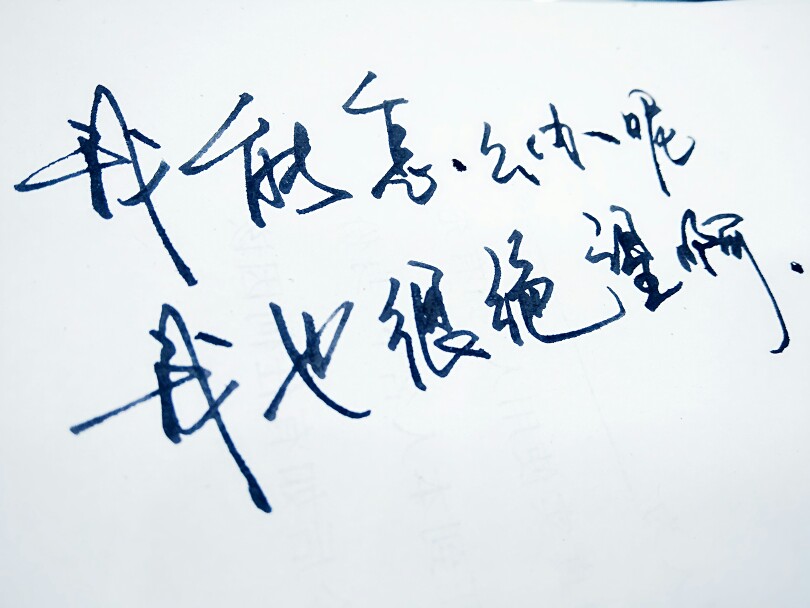 我能怎么办呢
我也很绝望啊.